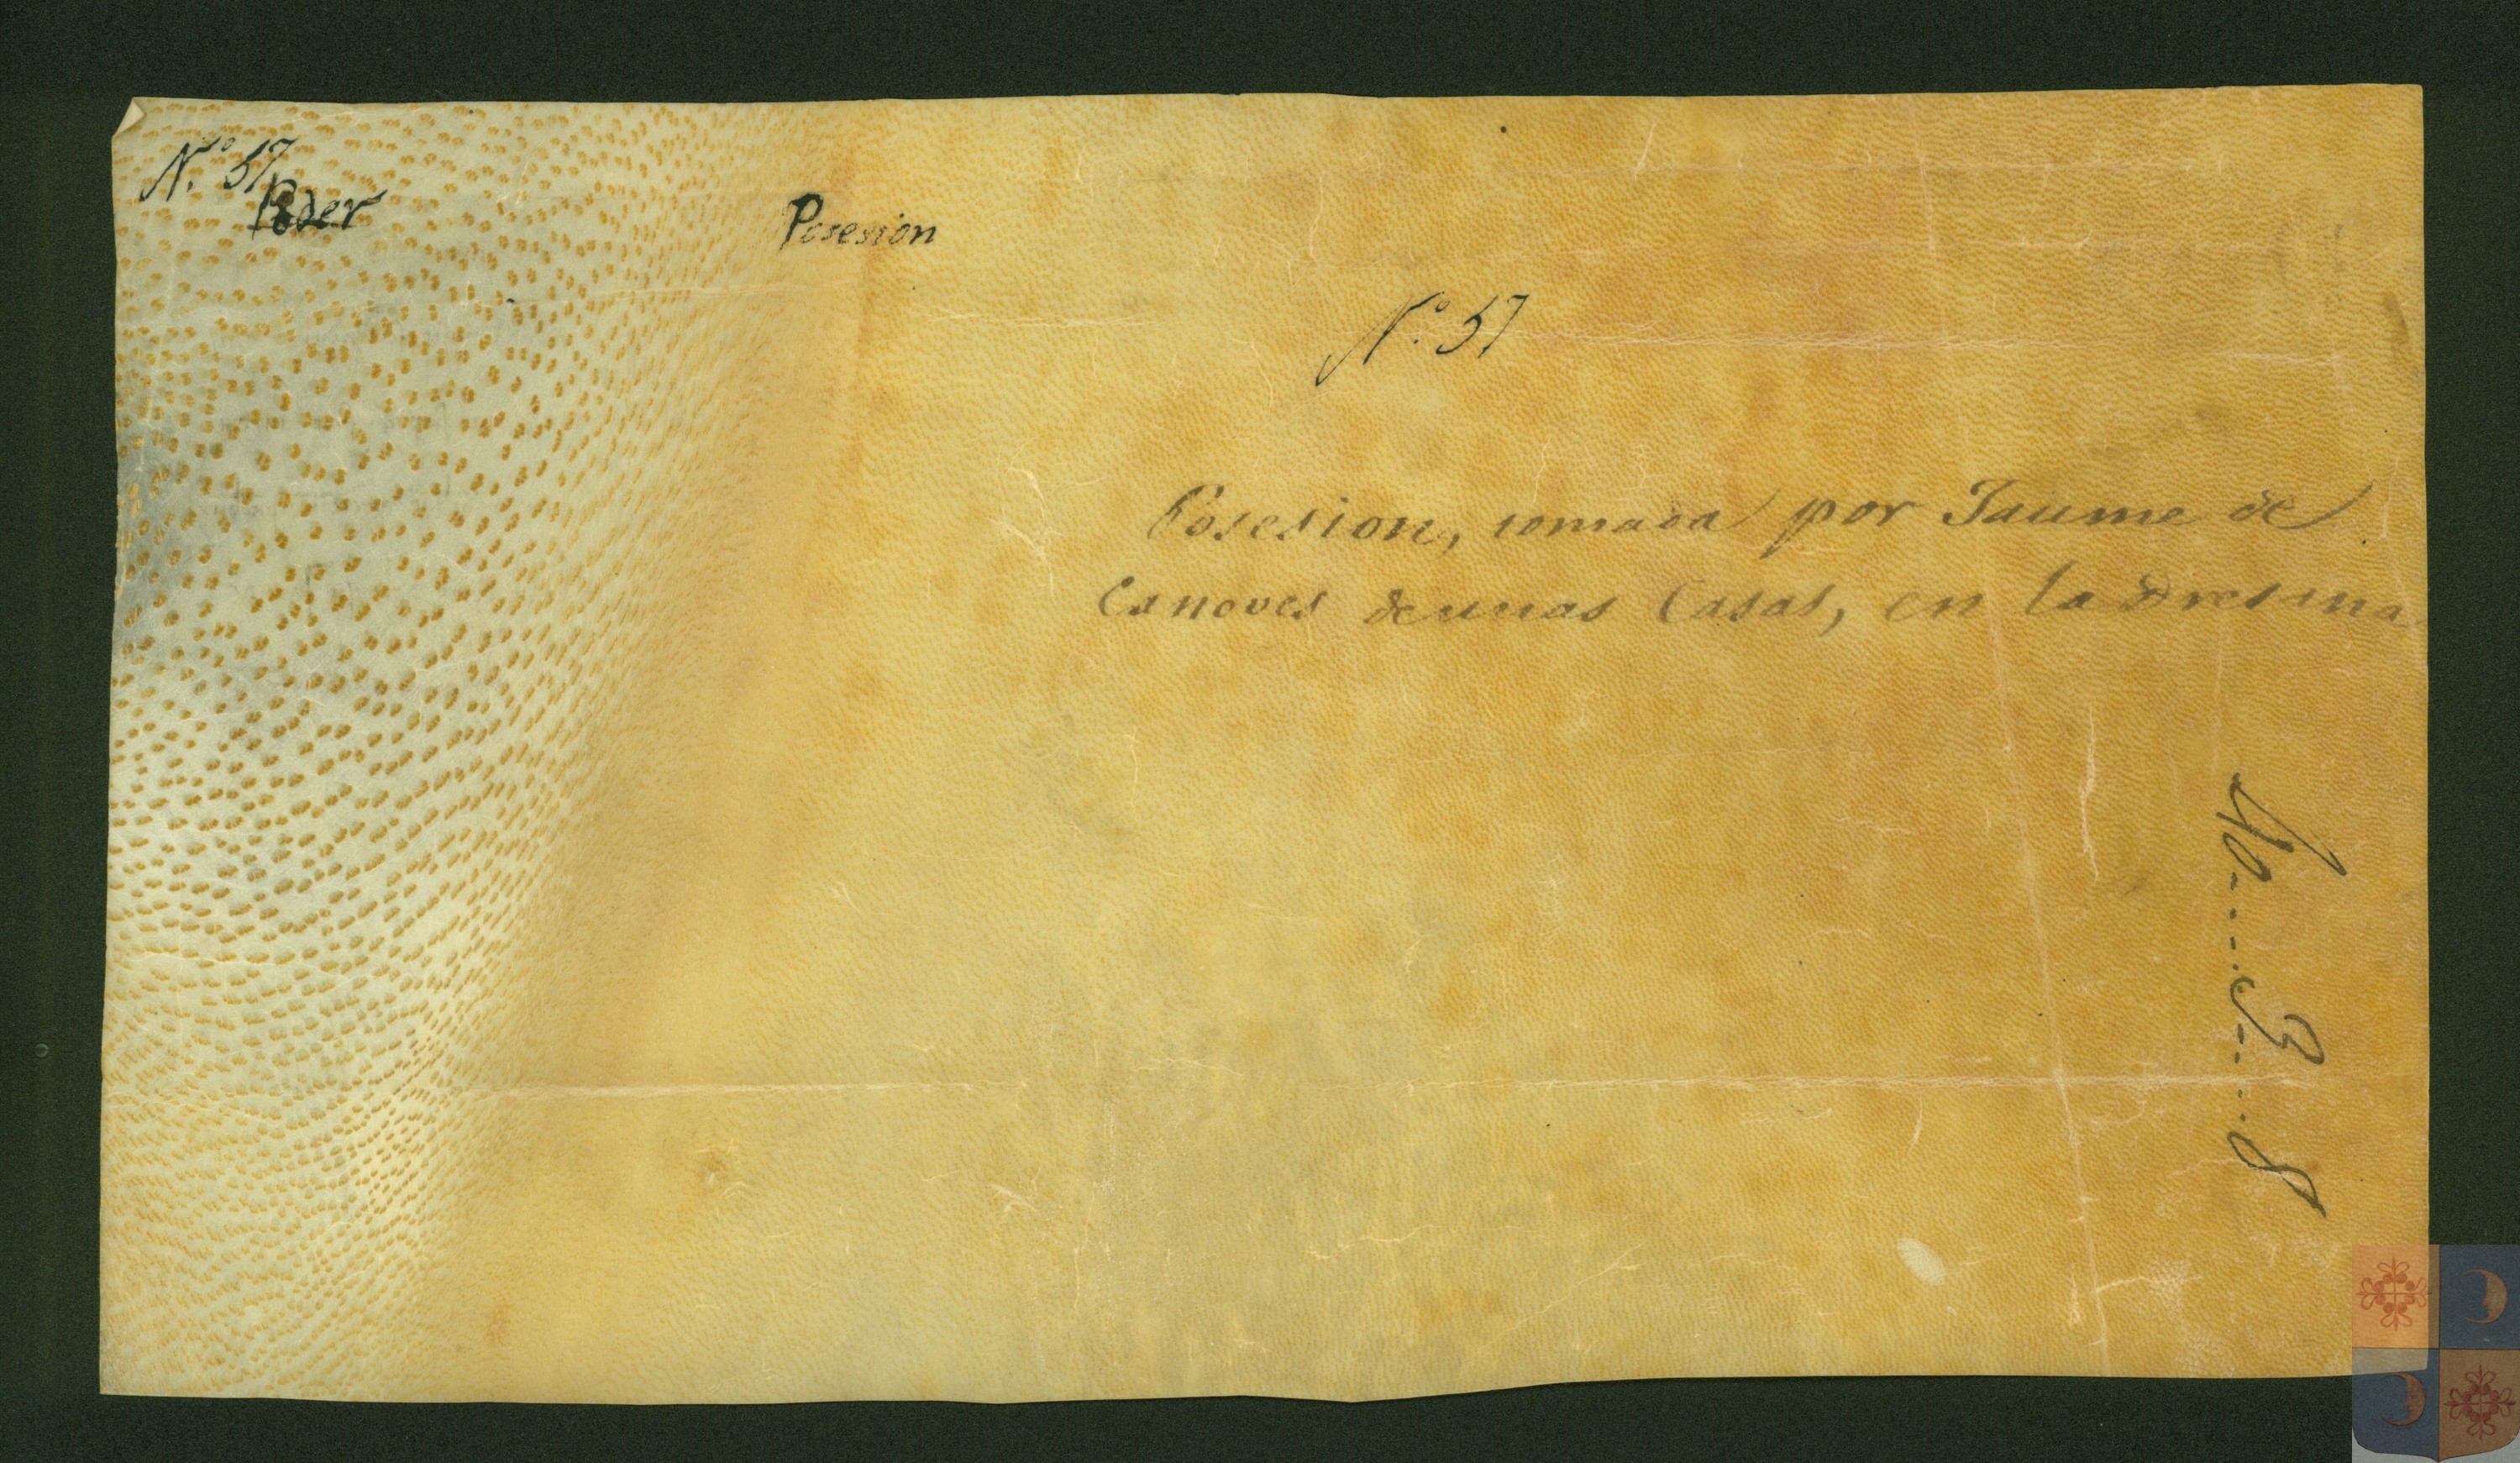 Nº. 57
Poder
Posesion
Nº. 57
Posesion, tomada por Jaume de
Canoves de unas Casas, en la
No....3....8